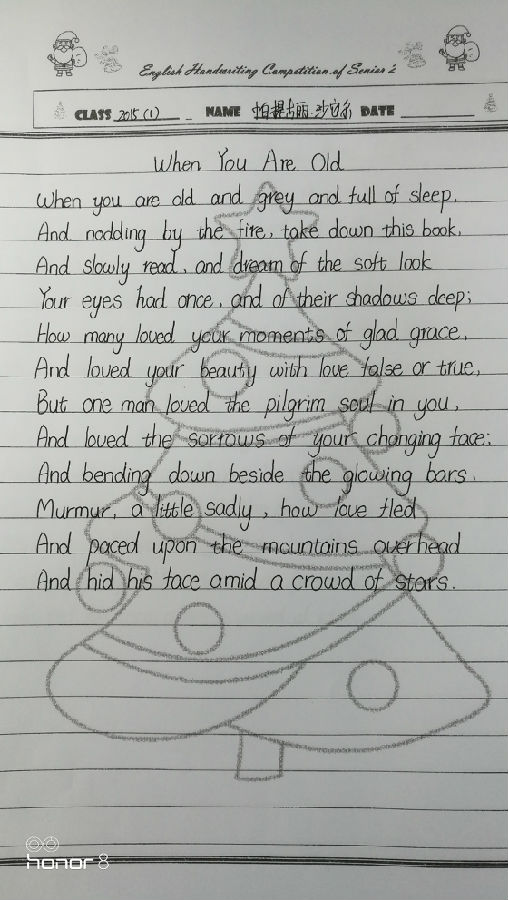 English Handwriting Competition of Senior 2
CLASS 2015(1) NAME 帕提古丽·沙它尔 DATE
When You Are Old
When you are old and grey and full of sleep,
And nodding by the fire, take down this book,
And slowly read, and dream of the soft look
Your eyes had once, and of their shadows deep;
How many loved your moments of glad grace,
And loved your beauty with love false or true,
But one man loved the pilgrim soul in you,
And loved the sorrows of your changing face;
And bending down beside the glowing bars.
Murmur, a little sadly, how love fled
And paced upon the mountains overhead
And hid his face amid a crowd of stars.
honor 8